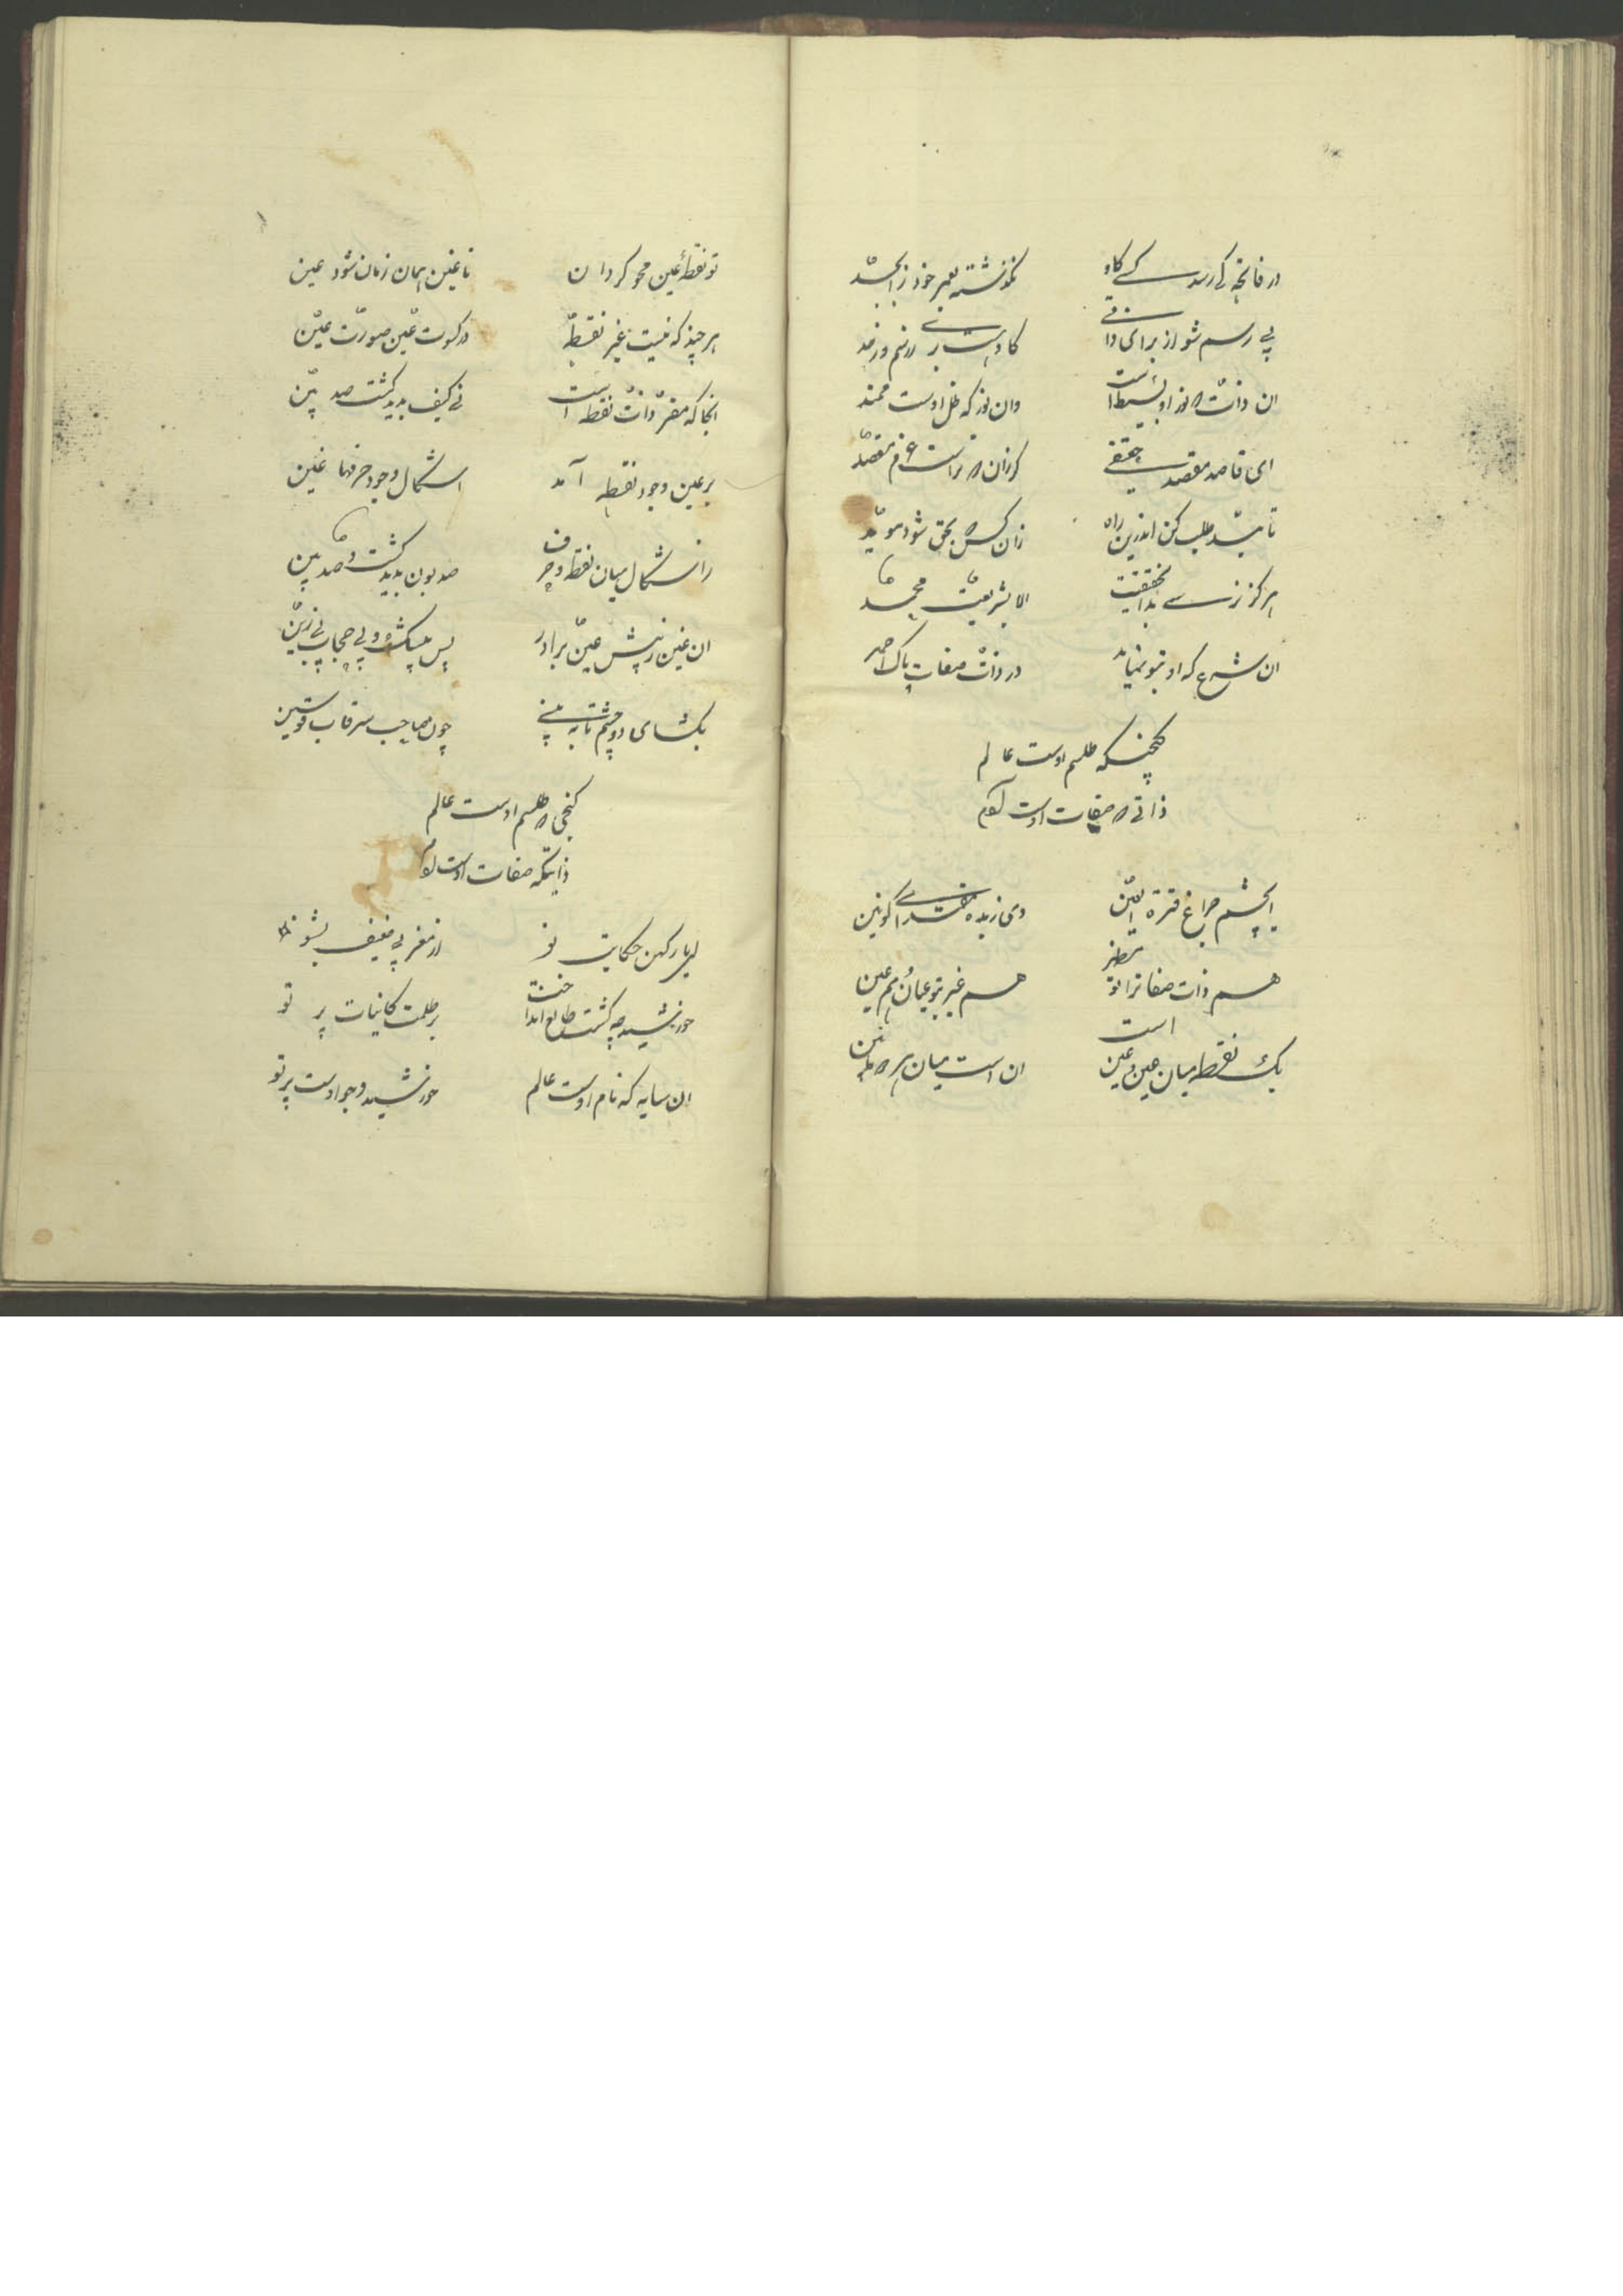 در فاتحه کی رسد کسی کاو نگذشته بعمر خود ز ابجد
بی رسم شو از برای دا
ان ذات که نور او بسیط است وان نور که ظل اوست ممتد
ای قاصد مقصد حقیقی کر زان که تراست عزم مقصد
تایید طلب کن اندرین راه زان کس که بحق شود موید
هرکز نرسی بدان حقیقت الا بشریعت محمد
ان شرع که او بتو نماید در ذات صفات پاک احمد
کنجیکه طلسم اوست عالم
ذاتی که صفات اوست آدم
ایچشم چراغ قرة العین وی زبده مقتدای کونین
هم ذات صفات را تو مظهر هم غیر بتو عیان هم عین
یک نقطه میان عین و غین است ان است میان
تو نقطهٔ غین محو کردان تا غین همان زمان شود عین
هر چند که نیست غیر نقطه در کسوت غین صورت عین
انجا که مقر ذات نقطه است نی کیف پدید کشت صد بین
بر عین وجود نقطه آمد اشکال وجود حرفها غین
زاشکال میان نقطه و حرف صد بون پدید کشت و صد بین
ان غین ز پیش عین بردار پس بی حجاب بی زین
بکشای دو چشم تا به بینی چون صاحب سر قاب قوسین
کنجی که طلسم اوست عالم
ذاتیکه صفات اوست آدم
ای یار کهن حکایت نو از مغربی ضعیف بشنو
خورشید چه کشت طالع انداخت بر ظلمت کاینات پر تو
ان سایه که نام اوست عالم خورشید وجود اوست پرتو